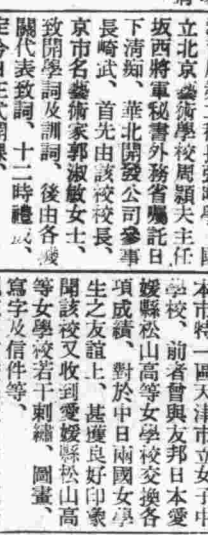 立北京藝術學校周頴夫主任
坂西將軍秘書外務省囑託日
下清痴、華北開發公司參事
長崎武、首先由該校校長、
京市名藝術家郭淑敏女士、
致開學詞及訓詞、後由各機
關代表致詞、十二時禮成、
定今日正式開課、
本市特一區天津市立女子中
學校、前者曾與友邦日本愛
媛縣松山高等女學校交換各
項成績、對於中日兩國女學
生之友誼上、甚獲良好印象
聞該校又收到愛媛縣松山高
等女學校若干刺繡、圖畫、
寫字及信件等、